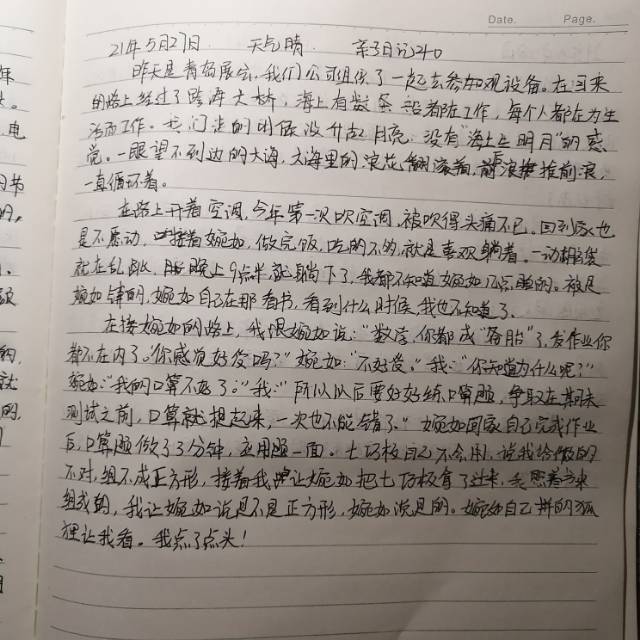 Date. Page.
年
电
21年5月27日 天气晴 亲子日记240
昨天是青岛展会,我们公司组织了一起去参加观设备。在回来
的路上经过了跨海大桥,海上有数条 船都在工作,每个人都在为生
活而工作。我们走的时候没升起月亮,没有“海上生明月”的感
觉。一眼望不到边的大海,大海里的浪花翻滚着,前浪推前浪,
一直循环着。
在路上开着空调,今年第一次吹空调,被吹得头痛不已。回到家也
是不愿动,接着婉如,做完饭,吃的不多,就是喜欢躺着。一动脑袋
就在乱跳,晚上9点半就躺下了,我都不知道婉如几点睡的。被是
婉如铺的,婉如自己在那看书,看到什么时候,我也不知道了。
在接婉如的路上,我跟婉如说:“数学,你都成“ 胎”了,发作业你
都不在内了。你感觉好受吗?”婉如:“不好受。”我:“你知道为什么呢?”
婉如:“我的口算不好了。”我:“所以以后要好好练口算题,争取在期末
测试之前,口算就提起来,一次也不能错了。”婉如回家自己完成作业
后,口算题做了33分钟,应用题一面。七巧板自己不会用,说我给做的
不对,组不成正方形,接着我让婉如把七巧板拿了过来,我照着书来
组成的,我让婉如说是不是正方形,婉如说是的。婉如自己拼的狐
狸让我看。我点了点头!